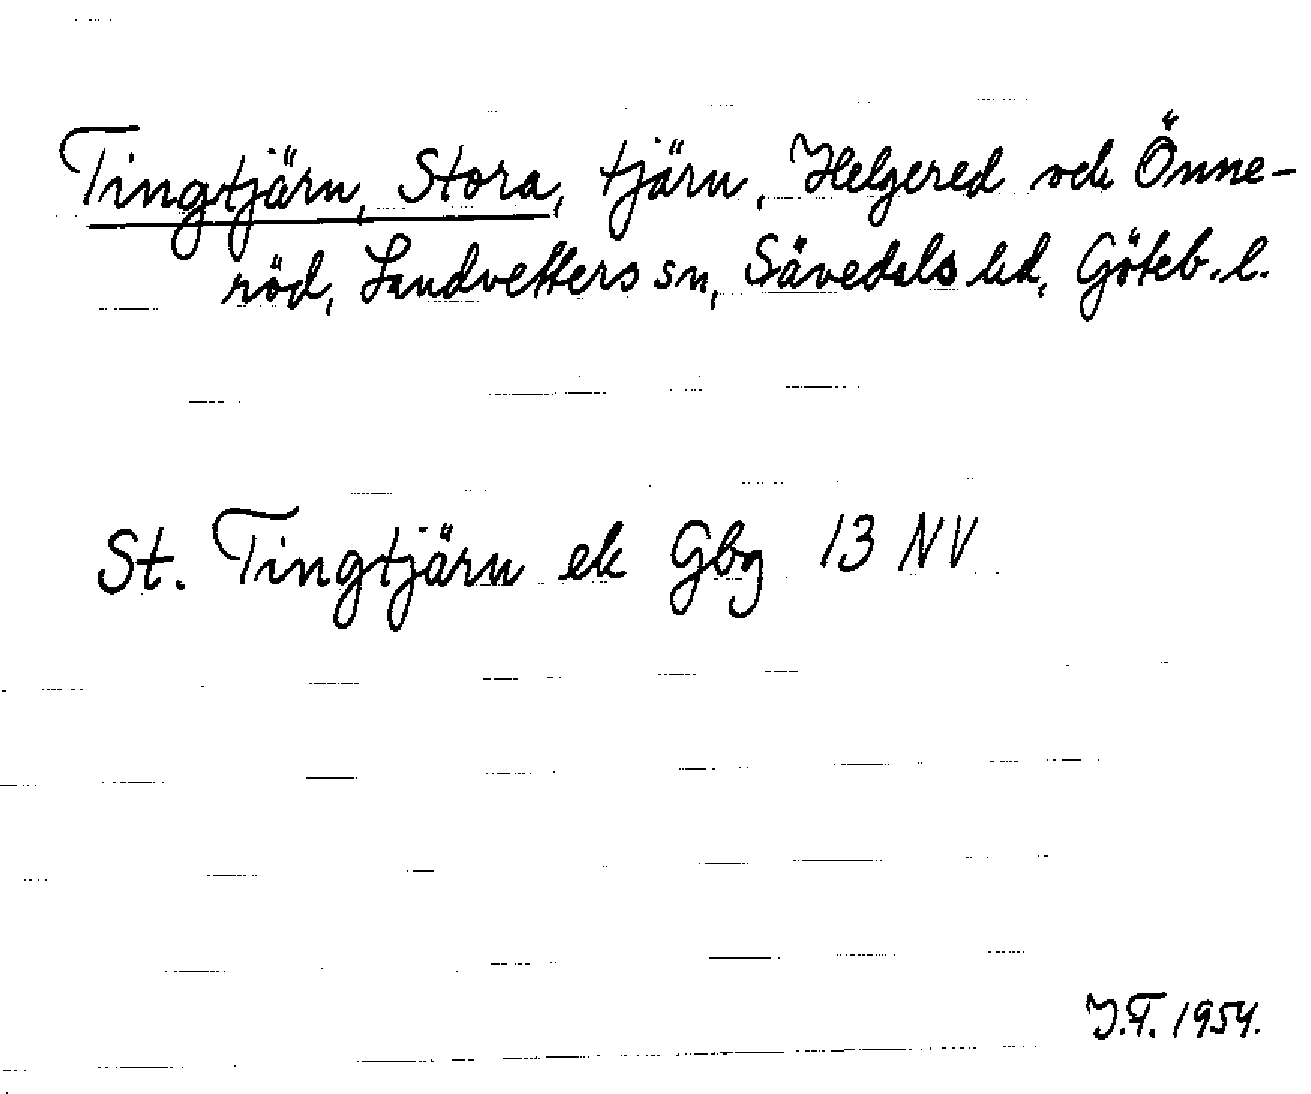 Tingtjärn, Stora, tjärn, Helgered och Önne-
röd, Landvetters sn, Sävedals hd, Göteb. l.
St. Tingtjärn ek Gbg 13 NV
J.F. 1954.